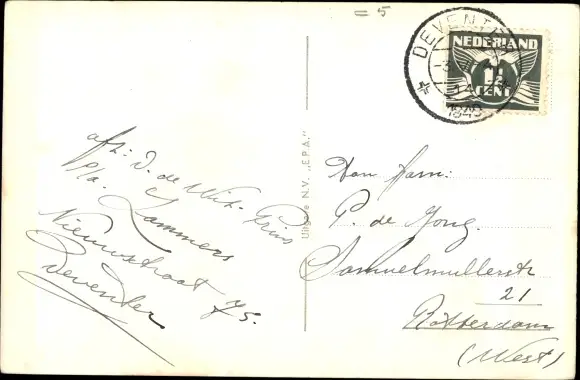 = 5
DEVENTER
14
1940
NEDERLAND
1½
CENT
afz: D. de Wit-Prins
p/a. Lammers
Nieuwstraat 75.
Deventer
Uitgave N.V. „E.P.A."
Aan Fam:
P. de Jong.
Samuelmullerstr
21
Rotterdam
(West)